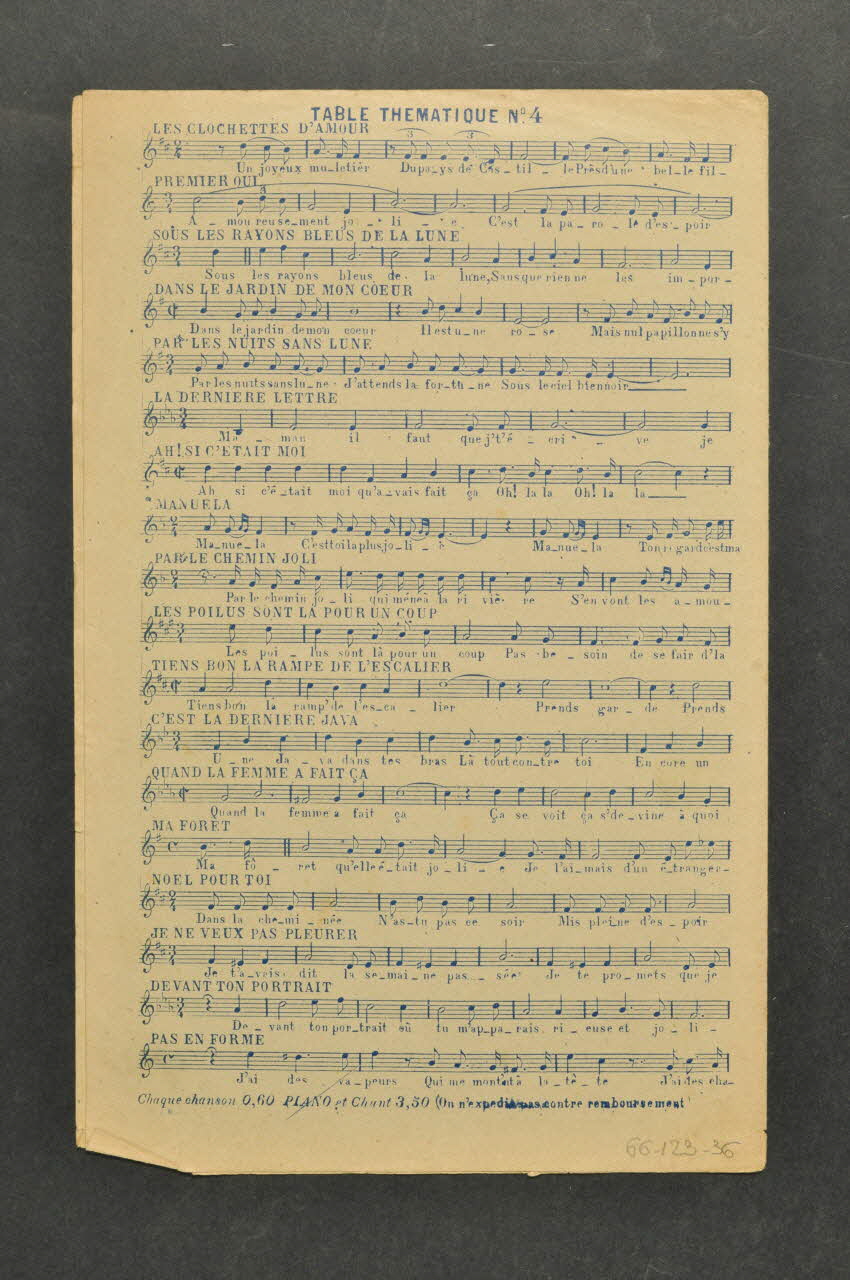 TABLE THEMATIQUE Nº 4
LES CLOCHETTES D'AMOUR
Un joyeux mu_letier Du pa_ys de Cas_til _ le Près d'une bel_le fil_
PREMIER OUI
A _ mou reuse_ment jo _ li _ e C'est la pa _ ro _ le d'es _ poir
SOUS LES RAYONS BLEUS DE LA LUNE
Sous les rayons bleus de la lune, Sans que rien ne les im _ por _
DANS LE JARDIN DE MON COEUR
Dans le jardin de mon coeur Il est u_ne ro _ se Mais nul papillon ne s'y
PAR LES NUITS SANS LUNE
Par les nuits sans lu_ne J'attends la for_tu_ne Sous le ciel bien noir
LA DERNIERE LETTRE
Ma _ man il faut que j't'é _ cri _ ve je
AH! SI C'ETAIT MOI
Ah si c'é_tait moi qu'a_vais fait ça Oh! la la Oh! la la
MANUELA
Ma_nue_la C'est toi la plus jo_li _ e Ma_nue_la Ton regard c'est ma
PAR LE CHEMIN JOLI
Par le chemin jo _ li qui mène à la ri viè _ re S'en vont les a _ mou _
LES POILUS SONT LÀ POUR UN COUP
Les poi _ lus sont là pour un coup Pas be _ soin de se fair d'la
TIENS BON LA RAMPE DE L'ESCALIER
Tiens bon la ramp' de l'es_ca _ lier Prends gar _ de Prends
C'EST LA DERNIERE JAVA
U _ ne Ja _ va dans tes bras Là tout con_tre toi En core un
QUAND LA FEMME A FAIT ÇA
Quand la femme a fait ça Ça se voit ça s'de_vine à quoi
MA FORET
Ma fô _ ret qu'elle é_tait jo _ li _ e Je l'ai_mais d'un é_tranger_
NOEL POUR TOI
Dans la che_mi _ née N'as_tu pas ce soir Mis pleine d'es _ poir
JE NE VEUX PAS PLEURER
Je t'a_vais dit la se_mai_ne pas _ sée Je te pro _ mets que je
DEVANT TON PORTRAIT
De _ vant ton por_trait où tu m'ap_pa_rais ri _ euse et jo _ li _
PAS EN FORME
J'ai des va _ peurs Qui me montent à la_tê _ te J'ai des cha_
Chaque chanson 0,60 PIANO et Chant 3,50 (On n'expédie pas contre remboursement
66-123-36